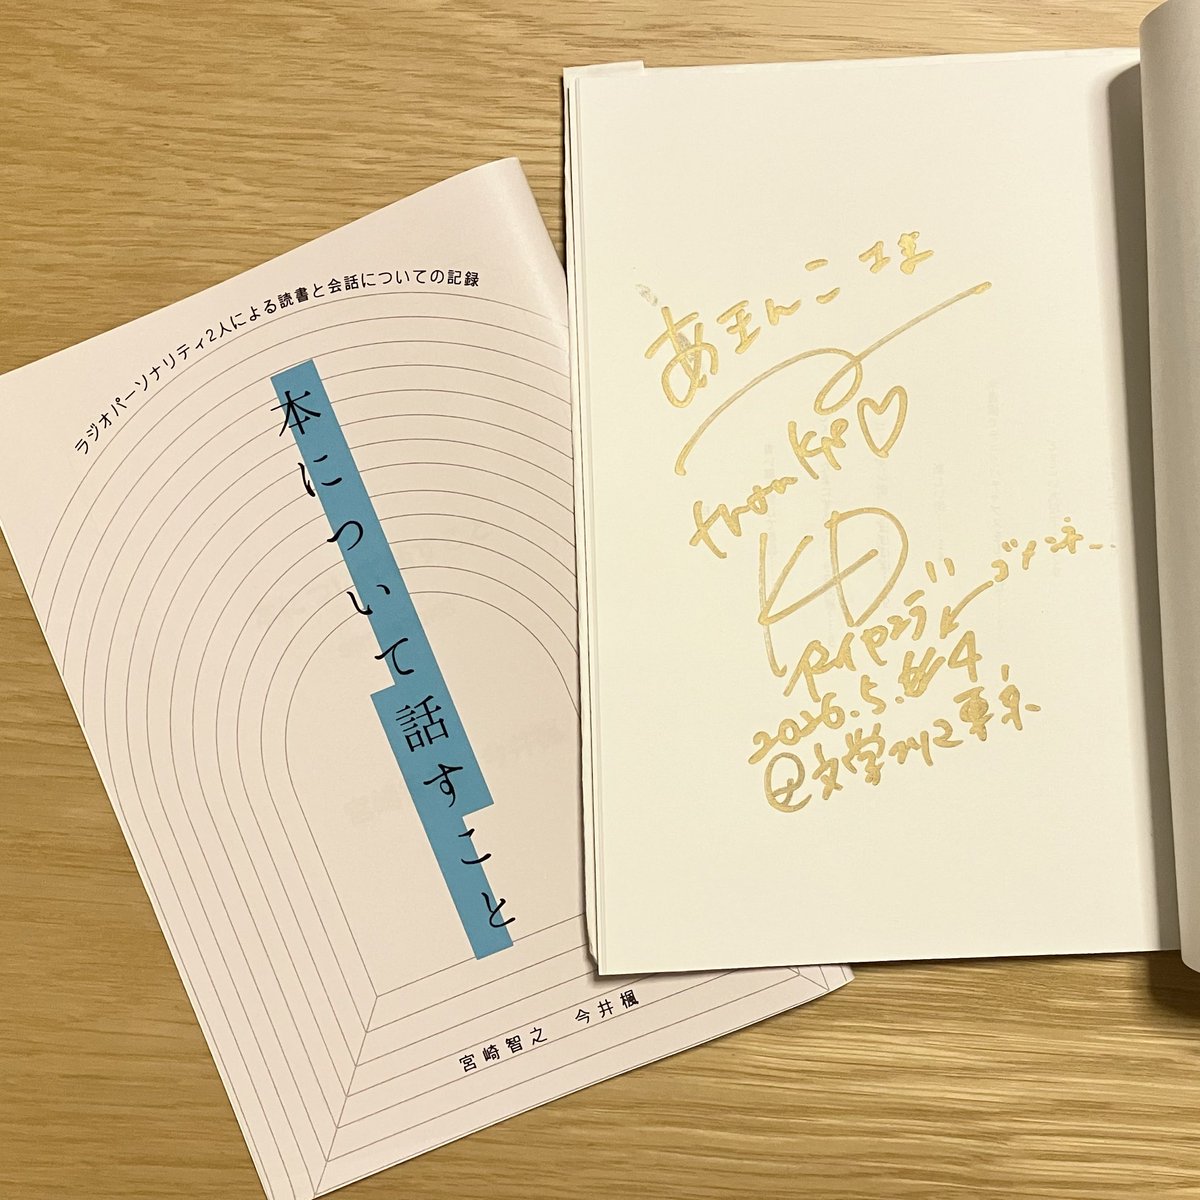 ラジオパーソナリティ2人による読書と会話についての記録
本について話すこと
宮崎智之 今井楓
あまんこ さま
thank you♡
ゴメンネー
2026.5.4
@文学フリマ東京